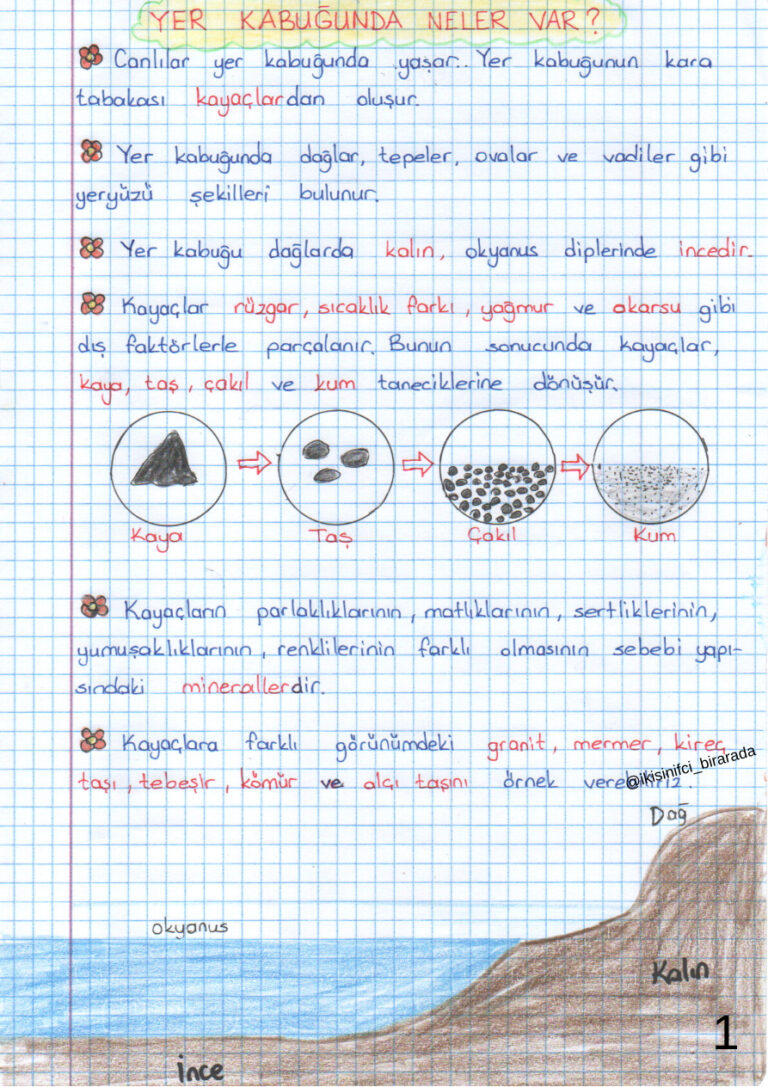 YER KABUĞUNDA NELER VAR?
Canlılar yer kabuğunda yaşar.. Yer kabuğunun kara
tabakası kayaçlardan oluşur.
Yer kabuğunda dağlar, tepeler, ovalar ve vadiler gibi
yeryüzü şekilleri bulunur.
Yer kabuğu dağlarda kalın, okyanus diplerinde incedir.
Kayaçlar rüzgar, sıcaklık farkı, yağmur ve akarsu gibi
dış faktörlerle parçalanır. Bunun sonucunda kayaçlar,
kaya, taş, çakıl ve kum taneciklerine dönüşür.
Kaya Taş Çakıl Kum
Kayaçların parlaklıklarının, matlıklarının, sertliklerinin,
yumuşaklıklarının, renklilerinin farklı olmasının sebebi yapı-
sındaki minerallerdir.
Kayaçlara farklı görünümdeki granit, mermer, kireç
taşı, tebeşir, kömür ve alçı taşını örnek verebiliriz.
@ikisinifci_birarada
Dağ
okyanus
Kalın
1
ince